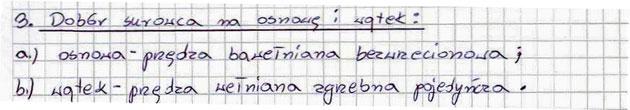 3. Dobór surowca na osnowę i wątek:
a.) osnowa - przędza bawełniana bezwrzecionowa;
b.) wątek - przędza wełniana zgrzebna pojedyńcza.